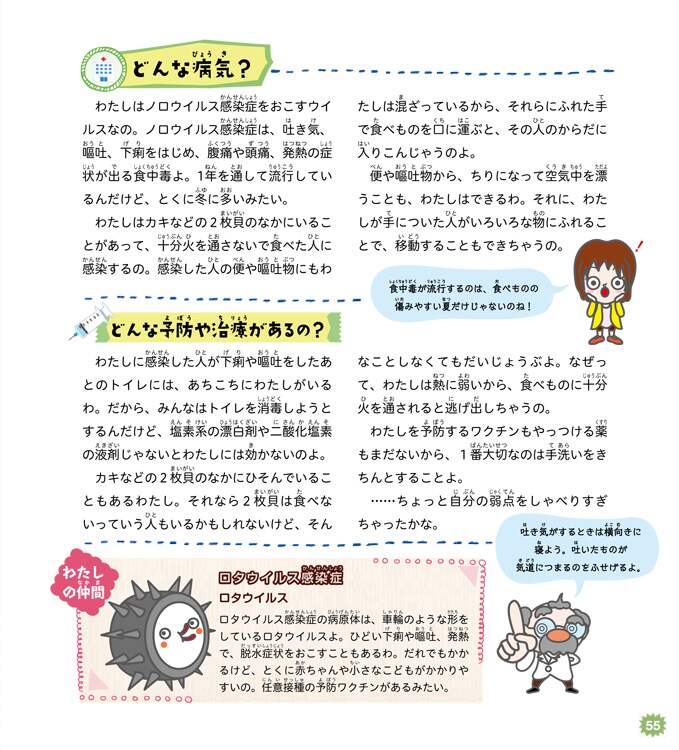 どんな病気？
わたしはノロウイルス感染症をおこすウイ
ルスなの。ノロウイルス感染症は、吐き気、
嘔吐、下痢をはじめ、腹痛や頭痛、発熱の症
状が出る食中毒よ。1年を通して流行してい
るんだけど、とくに冬に多いみたい。
わたしはカキなどの2枚貝のなかにいるこ
とがあって、十分火を通さないで食べた人に
感染するの。感染した人の便や嘔吐物にもわ
たしは混ざっているから、それらにふれた手
で食べものを口に運ぶと、その人のからだに
入りこんじゃうのよ。
便や嘔吐物から、ちりになって空気中を漂
うことも、わたしはできるわ。それに、わた
しが手についた人がいろいろな物にふれるこ
とで、移動することもできちゃうの。
食中毒が流行するのは、食べものの
傷みやすい夏だけじゃないのね！
どんな予防や治療があるの？
わたしに感染した人が下痢や嘔吐をしたあ
とのトイレには、あちこちにわたしがいる
わ。だから、みんなはトイレを消毒しようと
するんだけど、塩素系の漂白剤や二酸化塩素
の液剤じゃないとわたしには効かないのよ。
カキなどの2枚貝のなかにひそんでいるこ
ともあるわたし。それなら2枚貝は食べな
いっていう人もいるかもしれないけど、そん
なことしなくてもだいじょうぶよ。なぜっ
て、わたしは熱に弱いから、食べものに十分
火を通されると逃げ出しちゃうの。
わたしを予防するワクチンもやっつける薬
もまだないから、1番大切なのは手洗いをき
ちんとすることよ。
……ちょっと自分の弱点をしゃべりすぎ
ちゃったかな。
吐き気がするときは横向きに
寝よう。吐いたものが
気道につまるのをふせげるよ。
わたし
の仲間
ロタウイルス感染症
ロタウイルス
ロタウイルス感染症の病原体は、車輪のような形を
しているロタウイルスよ。ひどい下痢や嘔吐、発熱
で、脱水症状をおこすこともあるわ。だれでもかか
るけど、とくに赤ちゃんや小さなこどもがかかりや
すいの。任意接種の予防ワクチンがあるみたい。
55